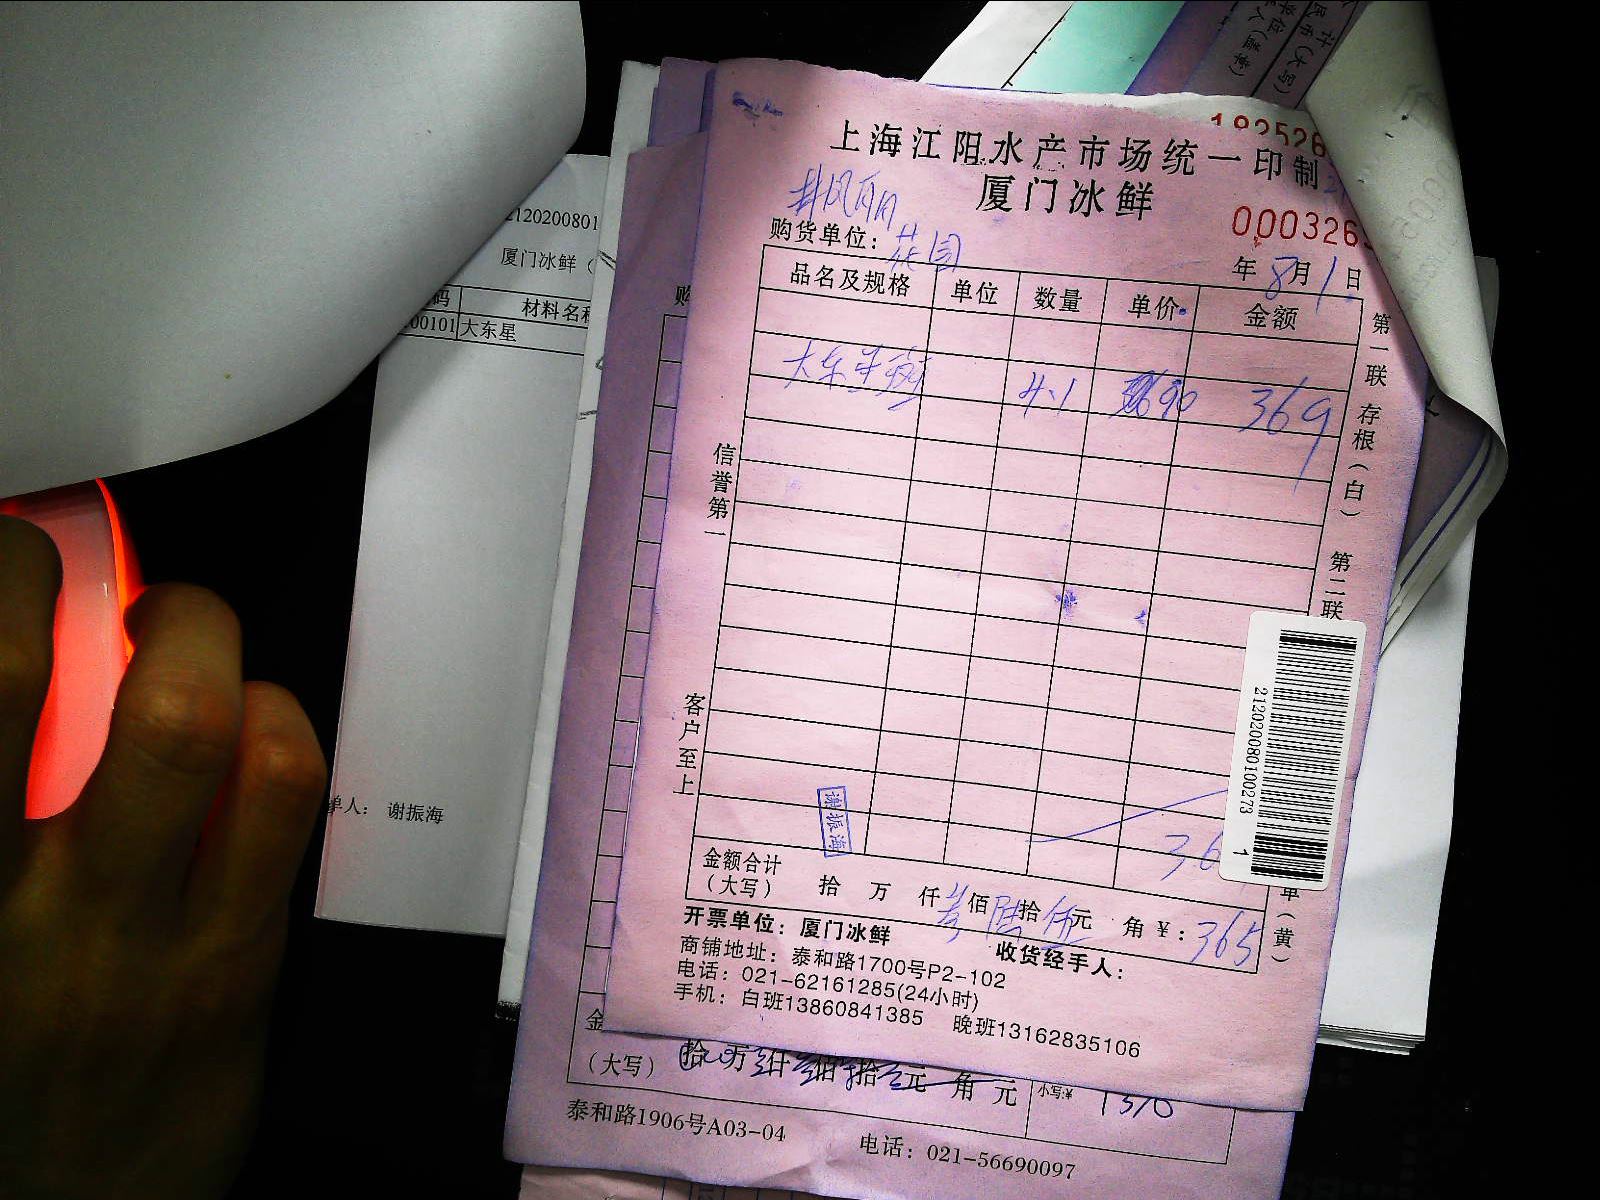 计
民币（大写）
单位
人（盖章）
上海江阳水产市场统一印制
厦门冰鲜
购货单位：花园
000326
年8月1日
品名及规格 单位 数量 单价 金额
大东星斑 4.1 90 369
信誉第一
客户至上
第一联 存根（白） 第二联
单（黄）
212020080100273 1
谢振海
金额合计
（大写） 拾 万 仟 叁佰陆拾伍元 角 ￥：365
开票单位：厦门冰鲜 收货经手人：
商铺地址：泰和路1700号P2-102
电话：021-62161285(24小时)
手机：白班13860841385 晚班13162835106
2120200801
厦门冰鲜（
码 材料名称
00101 大东星
单人： 谢振海
购
金
（大写） 拾 万 仟 佰 拾 元 角 元 小写:¥ 1370
泰和路1906号A03-04 电话：021-56690097